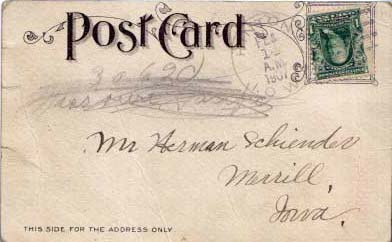 Post Card
A.M.
1907
Mr Herman Schiender
Merrill,
Iowa.
THIS SIDE FOR THE ADDRESS ONLY